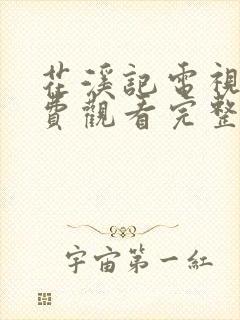 茌溪記電視
費觀看完整
宇宙第一紅